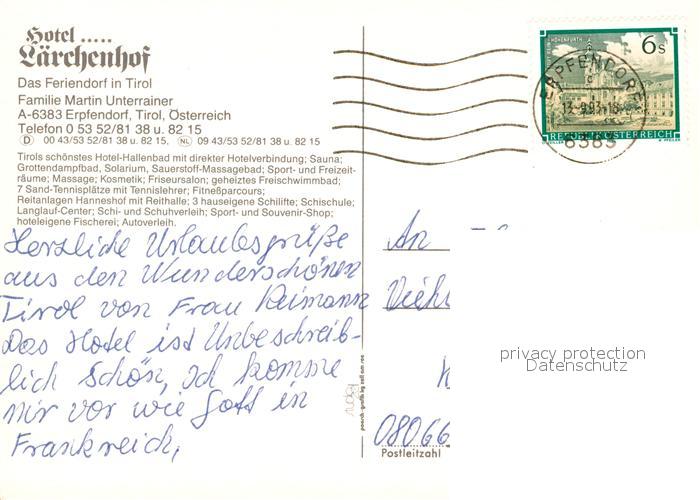 Hotel .....
Lärchenhof
Das Feriendorf in Tirol
Familie Martin Unterrainer
A-6383 Erpfendorf, Tirol, Österreich
Telefon 0 53 52/81 38 u. 82 15
D 00 43/53 52/81 38 u. 82 15, NL 09 43/53 52/81 38 u. 82 15
Tirols schönstes Hotel-Hallenbad mit direkter Hotelverbindung; Sauna;
Grottendampfbad, Solarium, Sauerstoff-Massagebad; Sport- und Freizeit-
räume; Massage; Kosmetik; Friseursalon; geheiztes Freischwimmbad;
7 Sand-Tennisplätze mit Tennislehrer; Fitneßparcours;
Reitanlagen Hanneshof mit Reithalle; 3 hauseigene Schilifte; Schischule;
Langlauf-Center; Schi- und Schuhverleih; Sport- und Souvenir-Shop;
hoteleigene Fischerei; Autoverleih.
Herzliche Urlaubsgrüße
aus den Wunderschönen
Tirol von Frau Reimann
Das Hotel ist Unbeschreib-
lich schön, Ich komme
mir vor wie Gott in
Frankreich,
6 s
ERPFENDORF
13.-9.93-18
6383
REPUBLIK ÖSTERREICH
An
Vieh
08066
Postleitzahl
privacy protection
Datenschutz